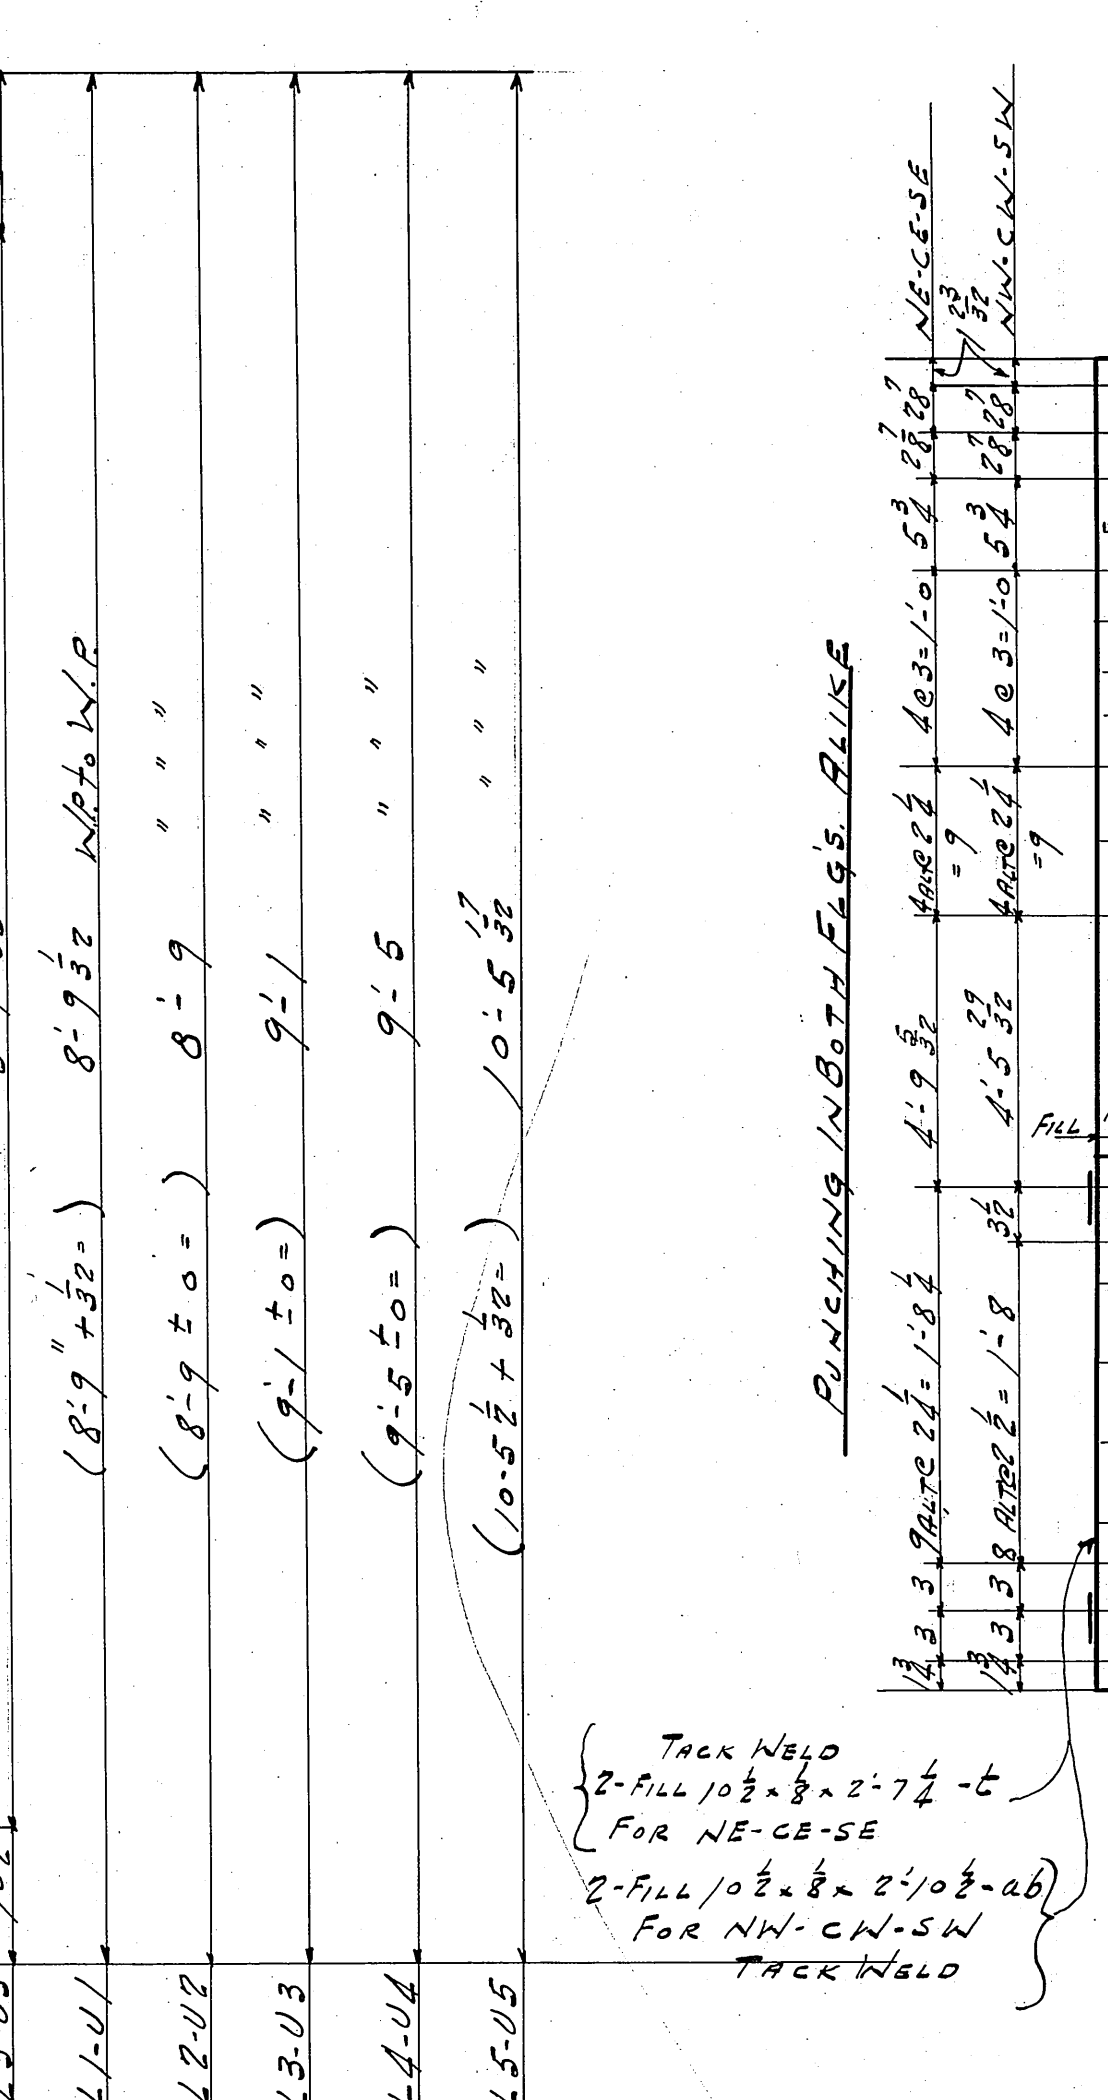 L1-U1 (8'-9" + 1/32 = ) 8'-9 1/32 W.P. to W.P.
L2-U2 (8'-9 ± 0 = ) 8'-9 " " "
L3-U3 (9'-1 ± 0 = ) 9'-1 " " "
L4-U4 (9'-5 ± 0 = ) 9'-5 " " "
L5-U5 (10-5 1/2 + 1/32 = ) 10'-5 17/32 " " "
PUNCHING IN BOTH FLG'S. ALIKE
1 3/4 3 3 9 ALT @ 2 1/4 = 1'-8 1/4 4'-9 5/32 4 ALT @ 2 1/4 = 9 4 @ 3 = 1'-0 5 3/4 2 7/8 2 7/8 NE-CE-SE
1 23/32
1 3/4 3 3 8 ALT @ 2 1/2 = 1'-8 3 1/2 4'-5 29/32 4 ALT @ 2 1/4 = 9 4 @ 3 = 1'-0 5 3/4 2 7/8 2 7/8 NW-CW-SW
FILL
TACK WELD
2-FILL 10 1/2 x 1/8 x 2'-7 1/4 -t
FOR NE-CE-SE
2-FILL 10 1/2 x 1/8 x 2'-10 1/2 -ab
FOR NW-CW-SW
TACK WELD